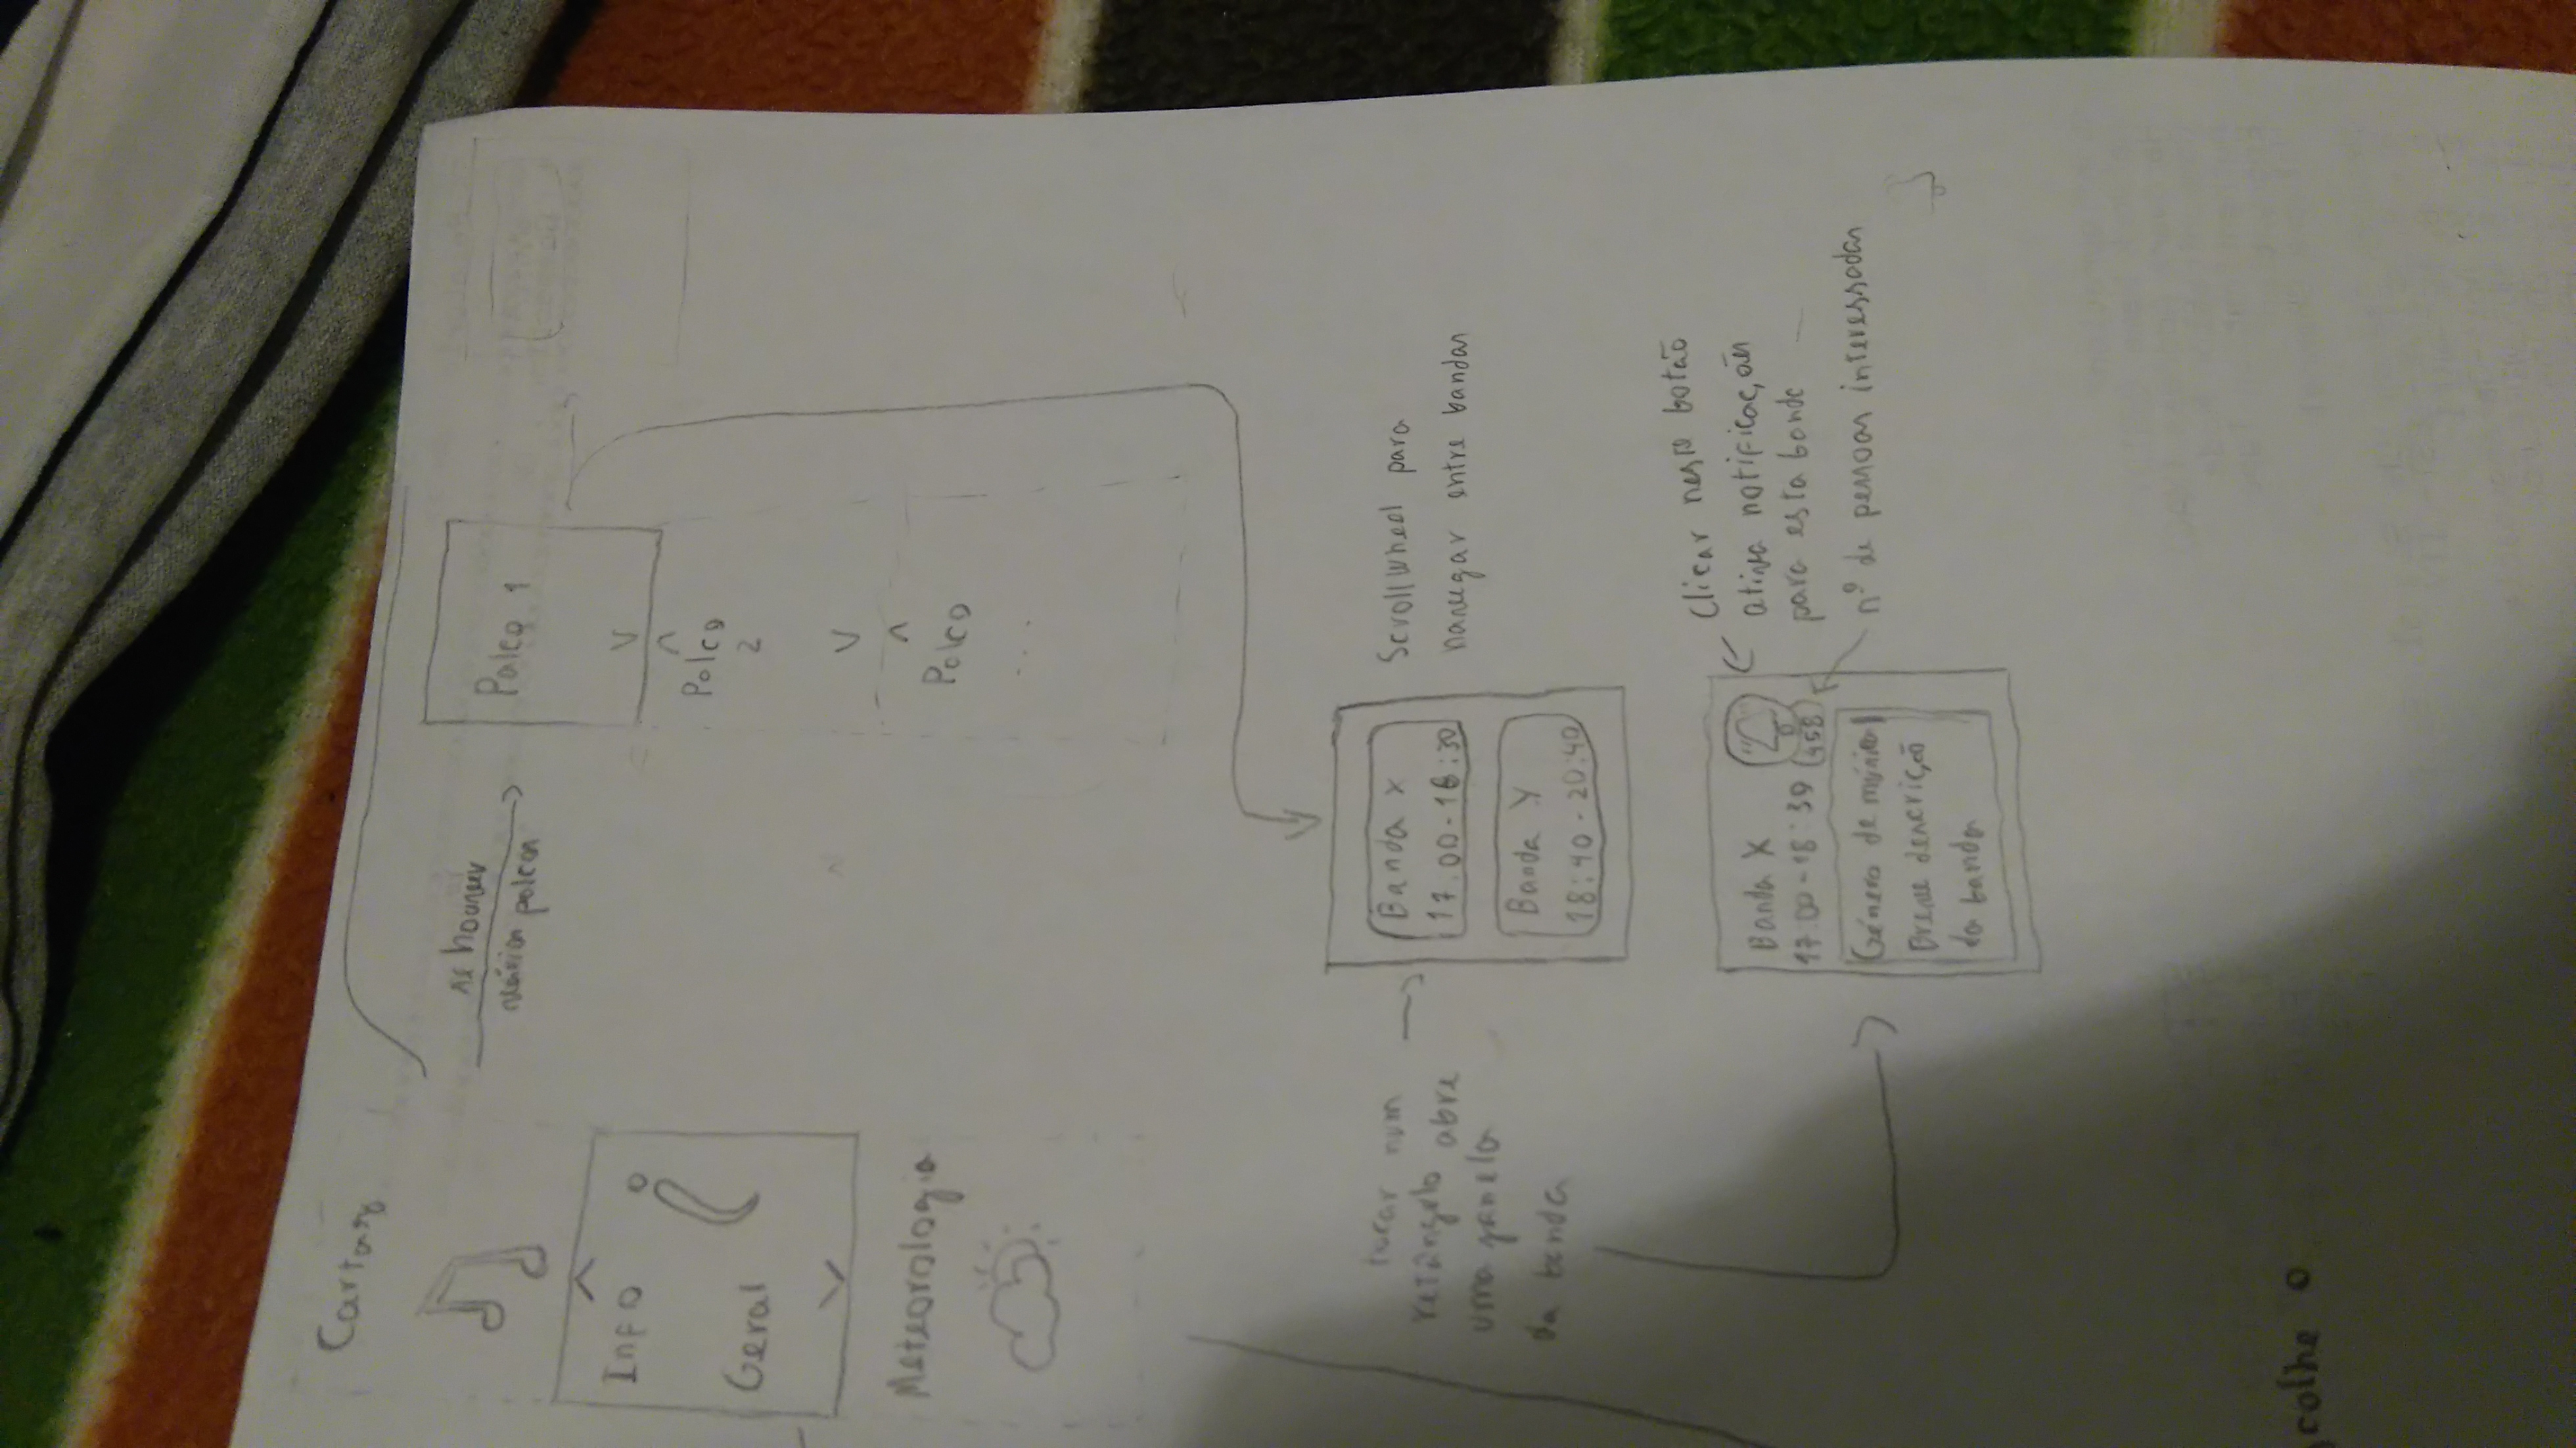 Cartaz
se houver
vários palcos
Palco 1
Info
Geral
Palco
2
Meteorologia
Palco
...
tocar num
retângulo abre
uma janela
da banda
Banda X
17:00-18:30
Banda Y
18:40-20:40
Scrollwheel para
navegar entre bandas
Banda X
17:00-18:30
458
Género de música
Breve descrição
da banda
Clicar neste botão
ativa notificações
para esta banda
nº de pessoas interessadas
colhe o